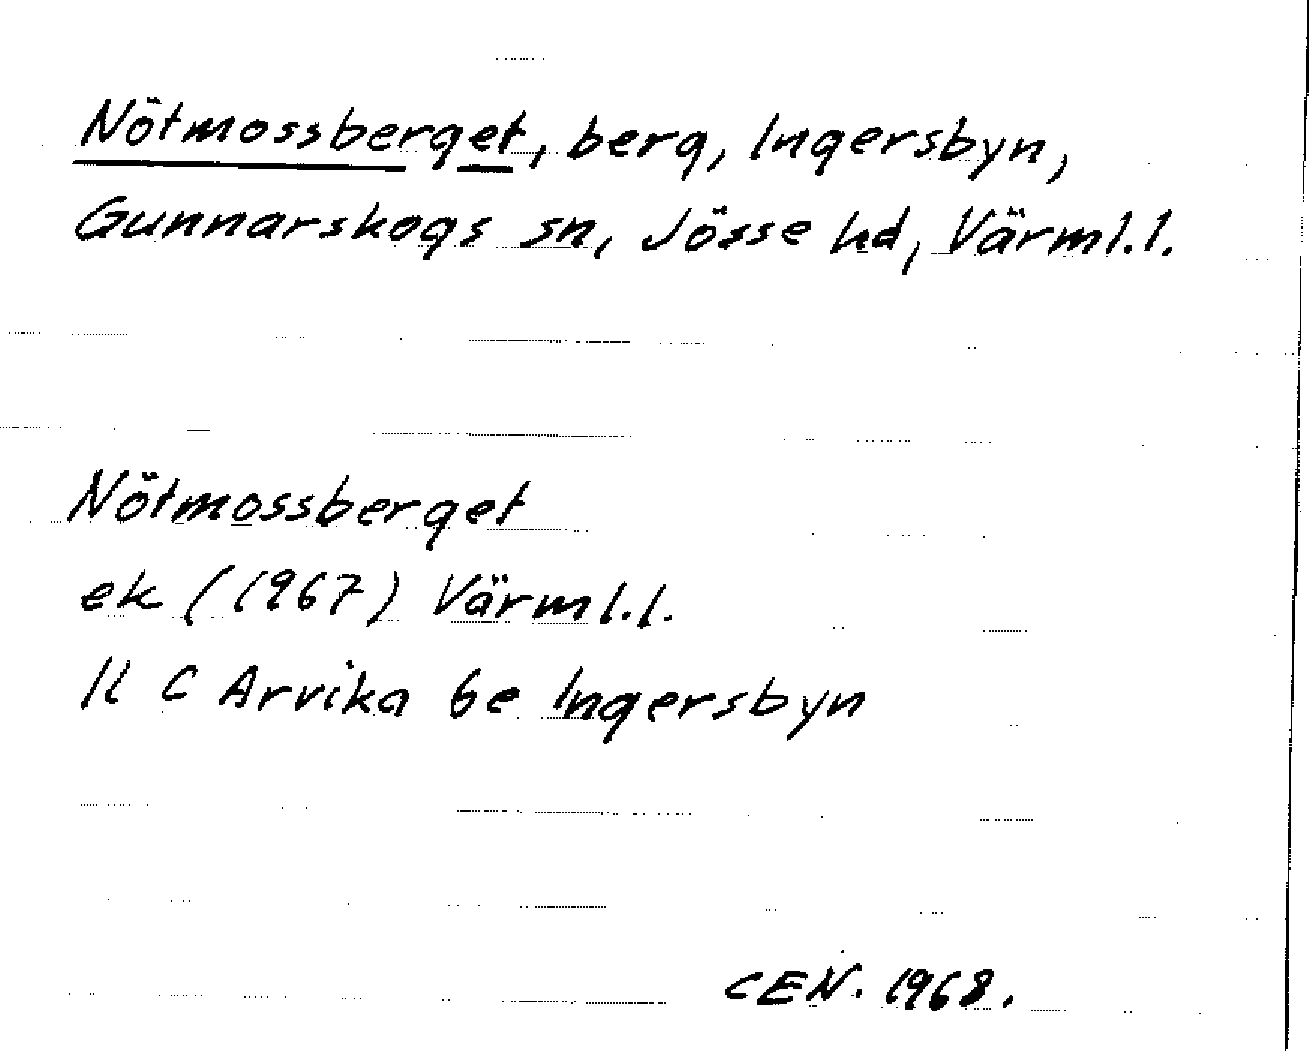 Nötmossberget, berg, Ingersbyn,
Gunnarskogs sn, Jösse hd, Värml.l.
Nötmossberget
ek (1967) Värml.l.
11 C Arvika 6e Ingersbyn
CEN. 1968.